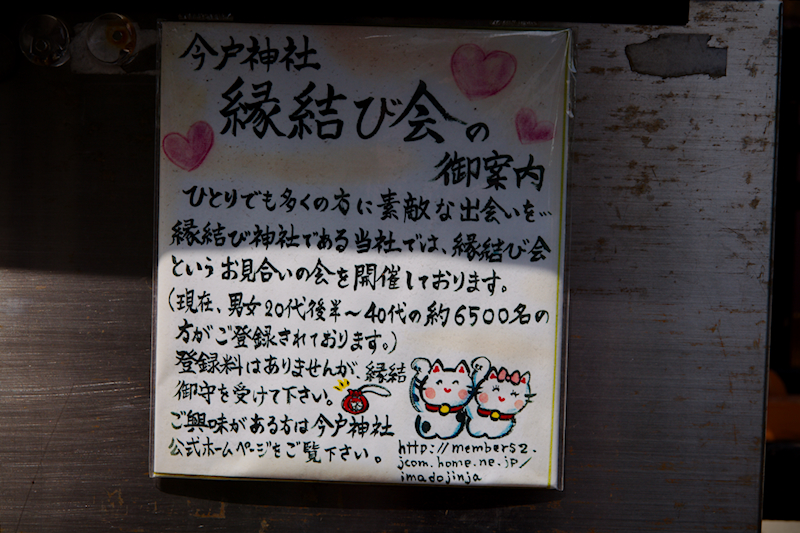 今戸神社
縁結び会の
御案内
ひとりでも多くの方に素敵な出会いを…
縁結び神社である当社では、縁結び会
というお見合いの会を開催しております。
（現在、男女20代後半～40代の約6500名の
方がご登録されております。）
登録料はありませんが、縁結
御守を受けて下さい。
ご興味がある方は今戸神社
公式ホームページをご覧下さい。
http://members2.
jcom.home.ne.jp/
imadojinja